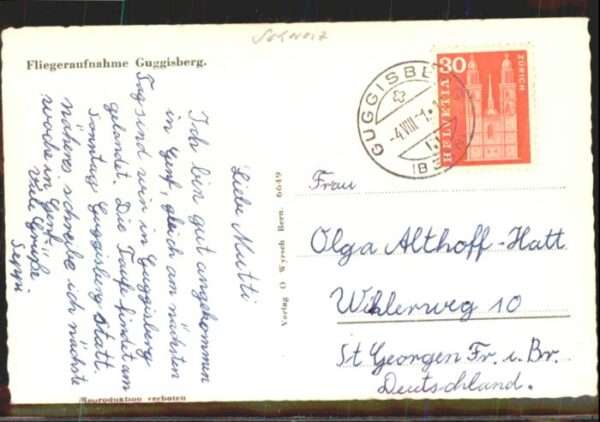 Schweiz
Fliegeraufnahme Guggisberg.
Liebe Mutti
Ich bin gut angekommen
in Genf, gleich am nächsten
Tag sind wir in Guggisberg
gelandet. Die Taufe findet am
Sonntag Guggisberg statt.
näheres schreibe ich nächste
woche in Genf.
Viele Grüße.
Seppi
Reproduktion verboten
Verlag O Wyrsch Bern. 6649
GUGGISB
-4.VIII
30
HELVETIA
ZÜRICH
Frau
Olga Althoff-Hatt
Wihlerweg 10
St. Georgen Fr. i. Br.
Deutschland.